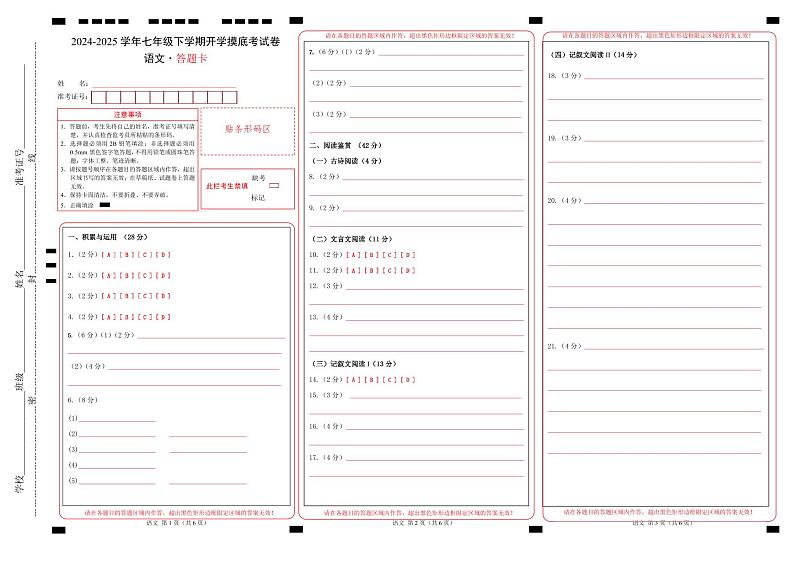 学校 班级 姓名 准考证号
密 封 线
2024-2025 学年七年级下学期开学摸底考试卷
语文·答题卡
姓 名：
准考证号：
注意事项
1．答题前，考生先将自己的姓名，准考证号填写清
楚，并认真检查监考员所粘贴的条形码。
2．选择题必须用 2B 铅笔填涂；非选择题必须用
0.5mm 黑色签字笔答题，不得用铅笔或圆珠笔答
题；字体工整、笔迹清晰。
3．请按题号顺序在各题目的答题区域内作答，超出
区域书写的答案无效；在草稿纸、试题卷上答题
无效。
4．保持卡面清洁，不要折叠、不要弄破。
5．正确填涂
贴条形码区
此栏考生禁填
缺考
标记
一、积累与运用 （28 分）
1．（2 分）[ A ] [ B ] [ C ] [ D ]
2．（2 分）[ A ] [ B ] [ C ] [ D ]
3．（2 分）[ A ] [ B ] [ C ] [ D ]
4．（2 分）[ A ] [ B ] [ C ] [ D ]
5．（6 分）(1)（2 分）
（2）（4 分）
6．（8 分）
(1)
(2)
(3)
(4)
(5)
请在各题目的答题区域内作答，超出黑色矩形边框限定区域的答案无效！
语文 第 1 页（共 6 页）
请在各题目的答题区域内作答，超出黑色矩形边框限定区域的答案无效！
7．（6 分）（1）（2 分）
（2）（2 分）
（3）（2 分）
二、阅读鉴赏 （42 分）
（一）古诗阅读（4 分）
8．（2 分）
9．（2 分）
（二）文言文阅读（11 分）
10．（2 分）[ A ] [ B ] [ C ] [ D ]
11．（2 分）[ A ] [ B ] [ C ] [ D ]
12．（3 分）
13．（4 分）
（三）记叙文阅读 I（13 分）
14．（2 分）[ A ] [ B ] [ C ] [ D ]
15．（3 分）
16．（4 分）
17．（4 分）
请在各题目的答题区域内作答，超出黑色矩形边框限定区域的答案无效！
语文 第 2 页（共 6 页）
请在各题目的答题区域内作答，超出黑色矩形边框限定区域的答案无效！
（四）记叙文阅读 II（14 分）
18．（3 分）
19．（3 分）
20．（4 分）
21．（4 分）
请在各题目的答题区域内作答，超出黑色矩形边框限定区域的答案无效！
语文 第 3 页（共 6 页）